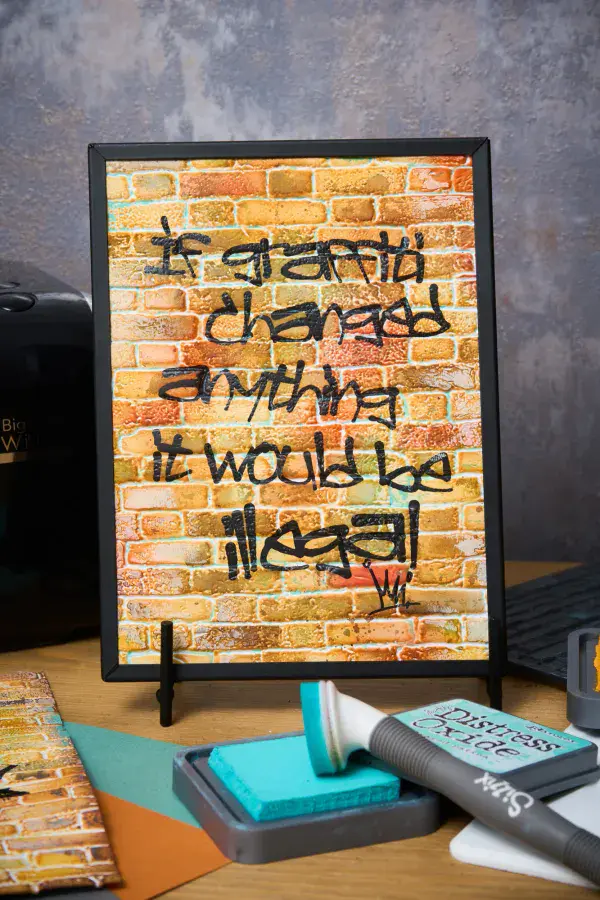 If graffiti
changed
anything
it would be
illegal
Big
Distress
Oxide
Sizzix